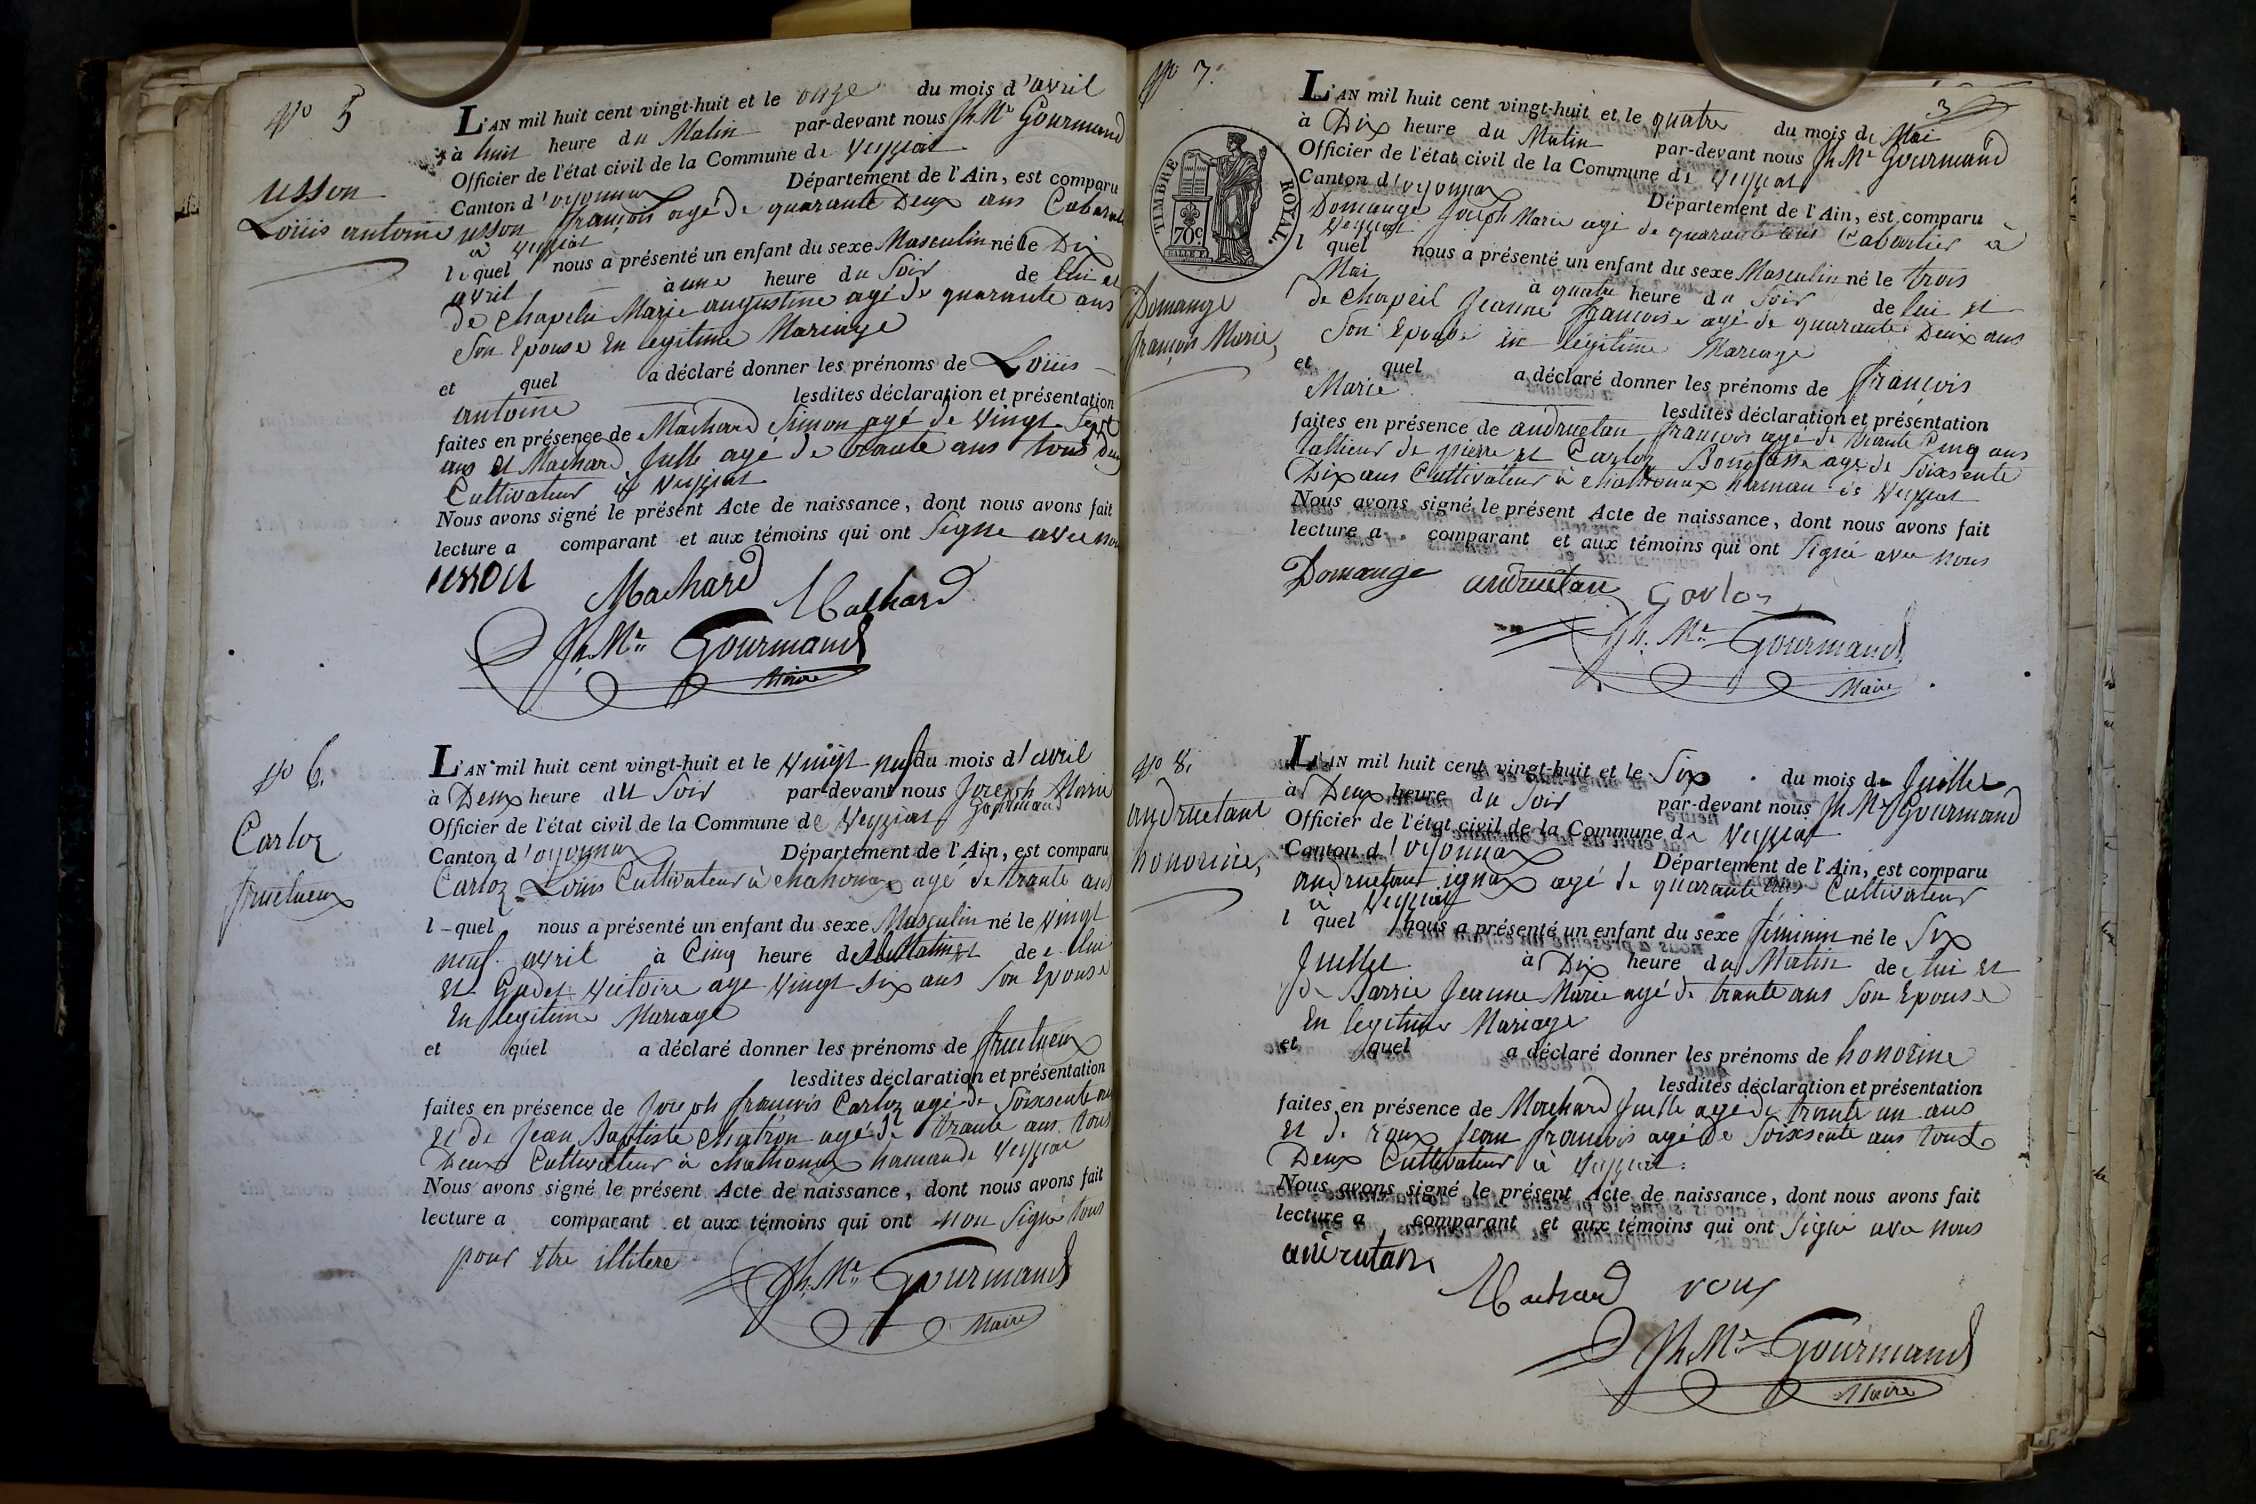 No 5
usson
Louis antoine
L'AN mil huit cent vingt-huit et le onze du mois d'avril
à huit heure du Matin par-devant nous Jh Me Gourmand
Officier de l'état civil de la Commune de Veyziat
Canton d'oyonnax Département de l'Ain, est comparu
usson françois agé de quarante Deux ans Cabaret
à Veyziat
le quel nous a présenté un enfant du sexe Masculin né le Dix
avril à une heure du Soir de lui et
de chapelu Marie augustine agé de quarante ans
Son Epouse En legitime Mariage
et quel a déclaré donner les prénoms de Louis
antoine lesdites déclaration et présentation
faites en présence de Machard Simon agé de Vingt Sept
ans et Machard Julle agé de trante ans tous Deux
Cultivateur à Veyziat
Nous avons signé le présent Acte de naissance, dont nous avons fait
lecture a comparant et aux témoins qui ont Signe avec nous
usson
Machard
Machard
Jh. Me Gourmand
Maire
No 6.
Carloz
fructueux
L'AN mil huit cent vingt-huit et le Vingt neuf du mois d'avril
à Deux heure du Soir par-devant nous Joseph Marie
Gourmand
Officier de l'état civil de la Commune de Veyziat
Canton d'oyonnax Département de l'Ain, est comparu
Carloz Louis Cultivateur à chatonax agé de trante ans
l-quel nous a présenté un enfant du sexe Masculin né le Vingt
neuf avril à Cinq heure du Matin et de lui
et Gudet Victoire age Vingt Six ans Son Epouse
En legitime Mariage
et quel a déclaré donner les prénoms de fructueux
lesdites déclaration et présentation
faites en présence de Joseph françois Carloz agé de Soixsente ans
et de Jean Baptiste chatron agé de trante ans tous
Deux Cultivateur à chathonax hamau de Veyziat
Nous avons signé le présent Acte de naissance, dont nous avons fait
lecture a comparant et aux témoins qui ont non Signé tous
pour etre illitere
Jh. Me Gourmand
Maire
No 7.
3
TIMBRE ROYAL.
70c
Domange
françois Marie,
L'AN mil huit cent vingt-huit et le quatre du mois de Mai
à Dix heure du Matin par-devant nous Jh Me Gourmand
Officier de l'état civil de la Commune de Veyziat
Canton d'oyonnax Département de l'Ain, est comparu
Domange Joseph Marie agé de quarante ans Cabartier à
Veyziat
l quel nous a présenté un enfant du sexe Masculin né le trois
Mai à quatre heure du Soir de lui et
de Chapeil Jeanne françoise agé de quarante Deux ans
Son Epouse En legitime Mariage
et quel a déclaré donner les prénoms de françois
Marie lesdites déclaration et présentation
faites en présence de andruetan françois agé de trante Cinq ans
tallieur de pierre et Carloz Bonifasse age de Soixsente
Dix ans Cultivateur à chathonax hamau de Veyziat
Nous avons signé le présent Acte de naissance, dont nous avons fait
lecture a comparant et aux témoins qui ont Signé avec nous
Domange andruetan Carloz
Jh. Me Gourmand
Maire
No 8.
andruetant
honorine,
L'AN mil huit cent vingt-huit et le Six du mois de Juillet
à Deux heure du Soir par-devant nous Jh Me Gourmand
Officier de l'état civil de la Commune de Veyziat
Canton d'oyonnax Département de l'Ain, est comparu
andruetant ignax agé de quarante Cultivateur
à Veyziat
l quel nous a présenté un enfant du sexe féminin né le Six
Juillet à Dix heure du Matin de lui et
de Barrie Jeanne Marie agé de trante ans Son Epouse
En legitime Mariage
et quel a déclaré donner les prénoms de honorine
lesdites déclaration et présentation
faites en présence de Machard Juelle agé de trante un ans
et de roux Jean françois agé de Soixsente ans tous
Deux Cultivateur à Veyziat
Nous avons signé le présent Acte de naissance, dont nous avons fait
lecture a comparant et aux témoins qui ont Signé avec nous
andrutan
Machard roux
Jh. Me Gourmand
Maire